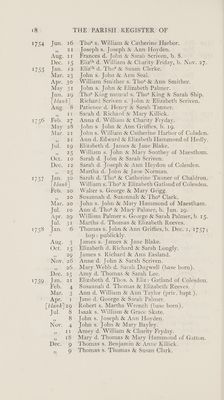 18 THE PARISH REGISTER OF
1754 Jun. 16 Thoˢ s. William & Catherine Harbor.
„ 11 Joseph s. Joseph & Ann Hoyden.
Aug. 11 Frances d. John & Sarah Scriben, b. 8.
Dec. 15 Elizᵗʰ d. William & Charity Fryday, b. Nov. 27.
1755 12 Elizᵗʰ d. Thoˢ & Susan Clerke.
Mar. 23 John s. John & Ann Seal.
Apr. 30 William Smither s. Thoˢ & Ann Smither.
May 31 John s. John & Elizabeth Palmer.
Jun. 29 Thoˢ King natural s. Thoˢ King & Sarah Ship.
[blank] Richard Scriven s. John & Elizabeth Scriven.
Aug. 8 Patience d. Henry & Sarah Tanner.
„ 11 Sarah d. Richard & Mary Killick.
1756 Feb. 27 Anna d. William & Charity Fryday.
May 28 John s. John & Ann Griffes, b. 19.
Mar. 21 John s. William & Catherine Harbor of Colsden.
„ 21 Ann d. Edward & Elizabeth Hammond of Hedly.
Jul. 19 Elizabeth d. James & Jane Blake.
„ 25 William s. John & Mary Southey of Maestham.
Oct. 10 Sarah d. John & Sarah Scriven.
Dec. 12 Sarah d. Joseph & Ann Hoyden of Colesden.
„ 25 Martha d. John & Jane Norman.
1757 Jan. 30 Sarah d. Thoˢ & Catherine Turner of Chaldron.
[blank] William s. Thoˢ & Elizabeth Gatland of Colesden.
Feb. 20 Walter s. George & Mary Grigg.
„ 20 Susannah d. Susannah & Thoˢ Clark.
Mar. 20 John s. John & Mary Hammond of Maestham.
Jul. 10 Ann d. Thoˢ & Mary Palmer, b. Jan. 29.
Apr. 29 William Palmer s. George & Sarah Palmer, b. 15.
Nov. 27 Martha d. Thomas & Elizabeth Reeves.
1758 Jan. 6 Thomas s. John & Ann Griffes, b. Dec. 1, 1757;
bap: publickly.
Aug. 3 James s. James & Jane Blake.
Oct. 15 Elizabeth d. Richard & Sarah Longly.
„ 29 James s. Richard & Ann Easland.
Nov. 26 Anne d. John & Sarah Scriven.
„ 26 Mary Webb d. Sarah Dagwell (base born).
Dec. 25 Amy d. Thomas & Sarah Lee.
1759 Jan. 21 Elizabeth d. Thos. & Eliz: Gatland of Colesdon.
Feb. 4 Susannah d. Thomas & Elizabeth Reeves.
Mar. 3 Ann d. William & Ann Taylor (priv. bapt.).
Apr. 1 Jane d. George & Sarah Palmer.
[blank] 29 Robert s. Martha Wrenth (base born).
Jul. 8 Isaak s. William & Grace Skate.
„ 8 John s. Joseph & Ann Hoyden.
Nov. 4 John s. John & Mary Bayley.
„ 11 Amey d. William & Charity Fryday.
„ 18 Mary d. Thomas & Mary Hammond of Gatton.
Dec. 9 Thomas s. Benjamin & Anne Killick.
„ 9 Thomas s. Thomas & Susan Clark.